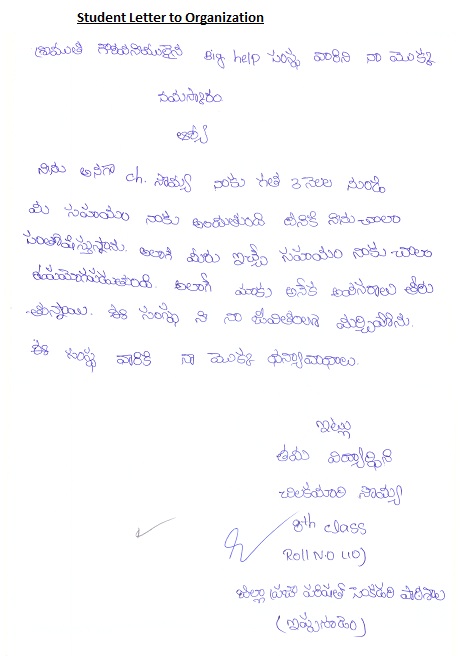 Student Letter to Organization
శ్రీమతి గౌరవనీయులైన Big help సంస్థ వారికి నా యొక్క
నమస్కారం
ఆర్య
నేను అనగా ch. సౌమ్య నాకు గత 3 నెలల నుండి
మీ సహాయం నాకు అందుతుంది దీనికి నేను చాలా
సంతోషిస్తున్నాను. అలాగే మీరు ఇచ్చే సహాయం నాకు చాలా
ఉపయోగపడుతుంది. అలాగే మాకు అనేక అవసరాలు తీరు
తున్నాయి. ఈ సంస్థ ని నా జీవితంలో మర్చిపోను.
ఈ సంస్థ వారికి నా యొక్క ధన్యవాదాలు.
ఇట్లు
తమ విద్యార్థిని
సౌమ్య
8th class
Roll NO (10)
జిల్లా ప్రజా పరిషత్ పాఠశాల